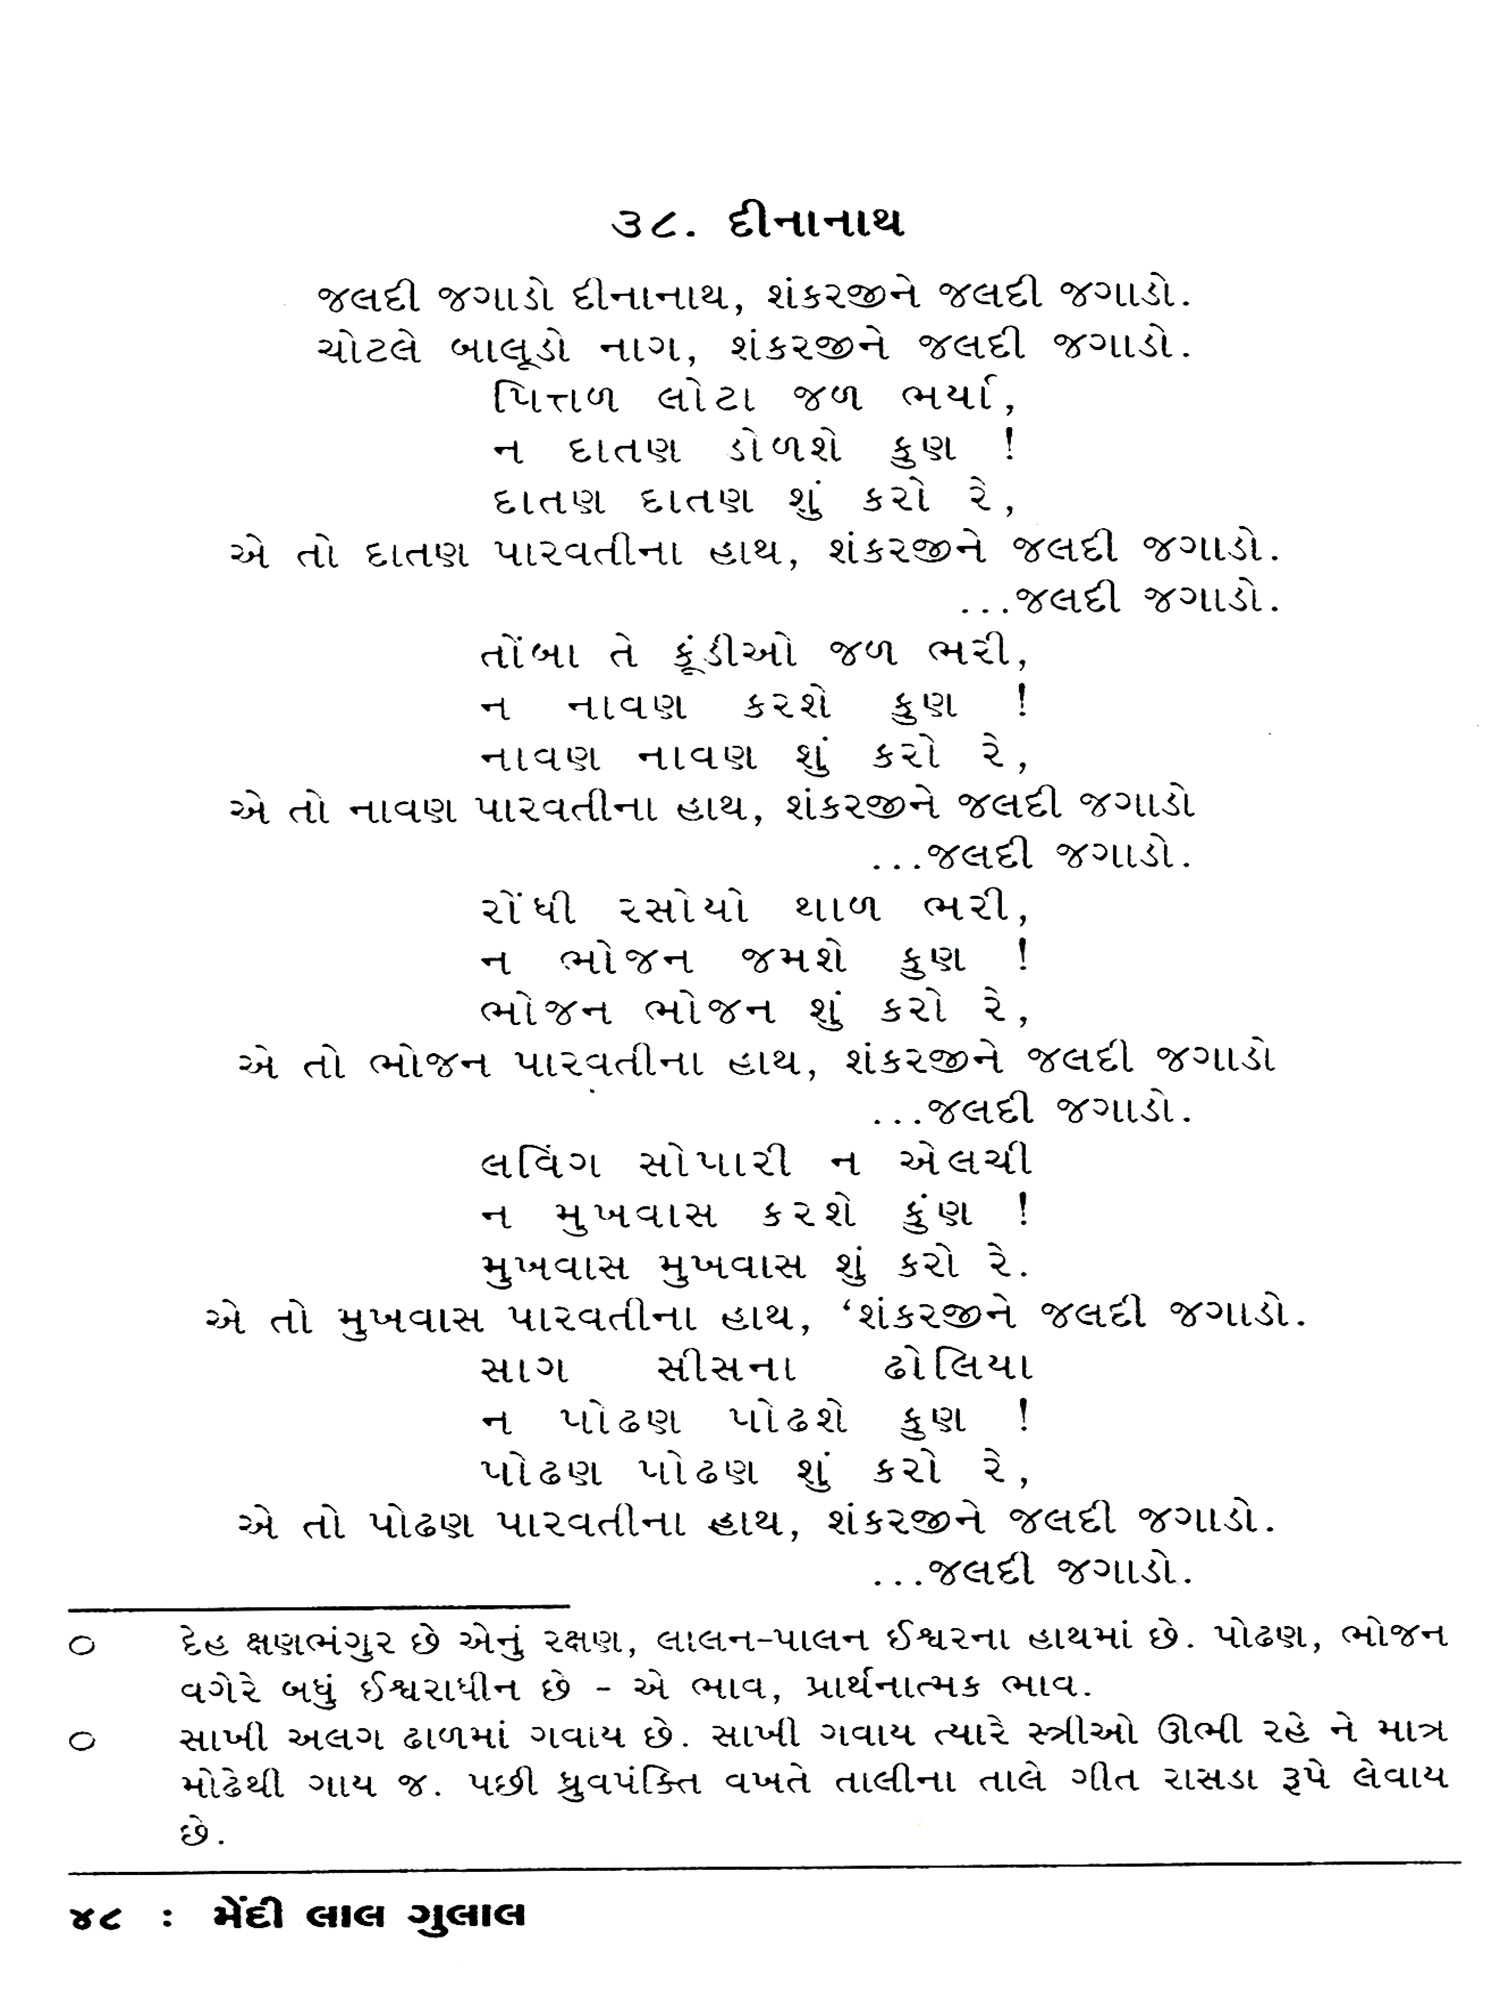 ૩૮. દીનાનાથ
જલદી જગાડો દીનાનાથ, શંકરજીને જલદી જગાડો.
ચોટલે બાલૂડો નાગ, શંકરજીને જલદી જગાડો.
પિત્તળ લોટા જળ ભર્યા,
ન દાતણ ડોળશે કુણ !
દાતણ દાતણ શું કરો રે,
એ તો દાતણ પારવતીના હાથ, શંકરજીને જલદી જગાડો.
...જલદી જગાડો.
તોંબા તે કૂંડીઓ જળ ભરી,
ન નાવણ કરશે કુણ !
નાવણ નાવણ શું કરો રે,
એ તો નાવણ પારવતીના હાથ, શંકરજીને જલદી જગાડો
...જલદી જગાડો.
રોંધી રસોયો થાળ ભરી,
ન ભોજન જમશે કુણ !
ભોજન ભોજન શું કરો રે,
એ તો ભોજન પારવતીના હાથ, શંકરજીને જલદી જગાડો
...જલદી જગાડો.
લવિંગ સોપારી ન એલચી
ન મુખવાસ કરશે કુંણ !
મુખવાસ મુખવાસ શું કરો રે.
એ તો મુખવાસ પારવતીના હાથ, ‘શંકરજીને જલદી જગાડો.
સાગ સીસના ઢોલિયા
ન પોઢણ પોઢશે કુણ !
પોઢણ પોઢણ શું કરો રે,
એ તો પોઢણ પારવતીના હાથ, શંકરજીને જલદી જગાડો.
...જલદી જગાડો.
○ દેહ ક્ષણભંગુર છે એનું રક્ષણ, લાલન-પાલન ઈશ્વરના હાથમાં છે. પોઢણ, ભોજન
વગેરે બધું ઈશ્વરાધીન છે - એ ભાવ, પ્રાર્થનાત્મક ભાવ.
○ સાખી અલગ ઢાળમાં ગવાય છે. સાખી ગવાય ત્યારે સ્ત્રીઓ ઊભી રહે ને માત્ર
મોઢેથી ગાય જ. પછી ધ્રુવપંક્તિ વખતે તાલીના તાલે ગીત રાસડા રૂપે લેવાય
છે.
૪૮ : મેંદી લાલ ગુલાલ